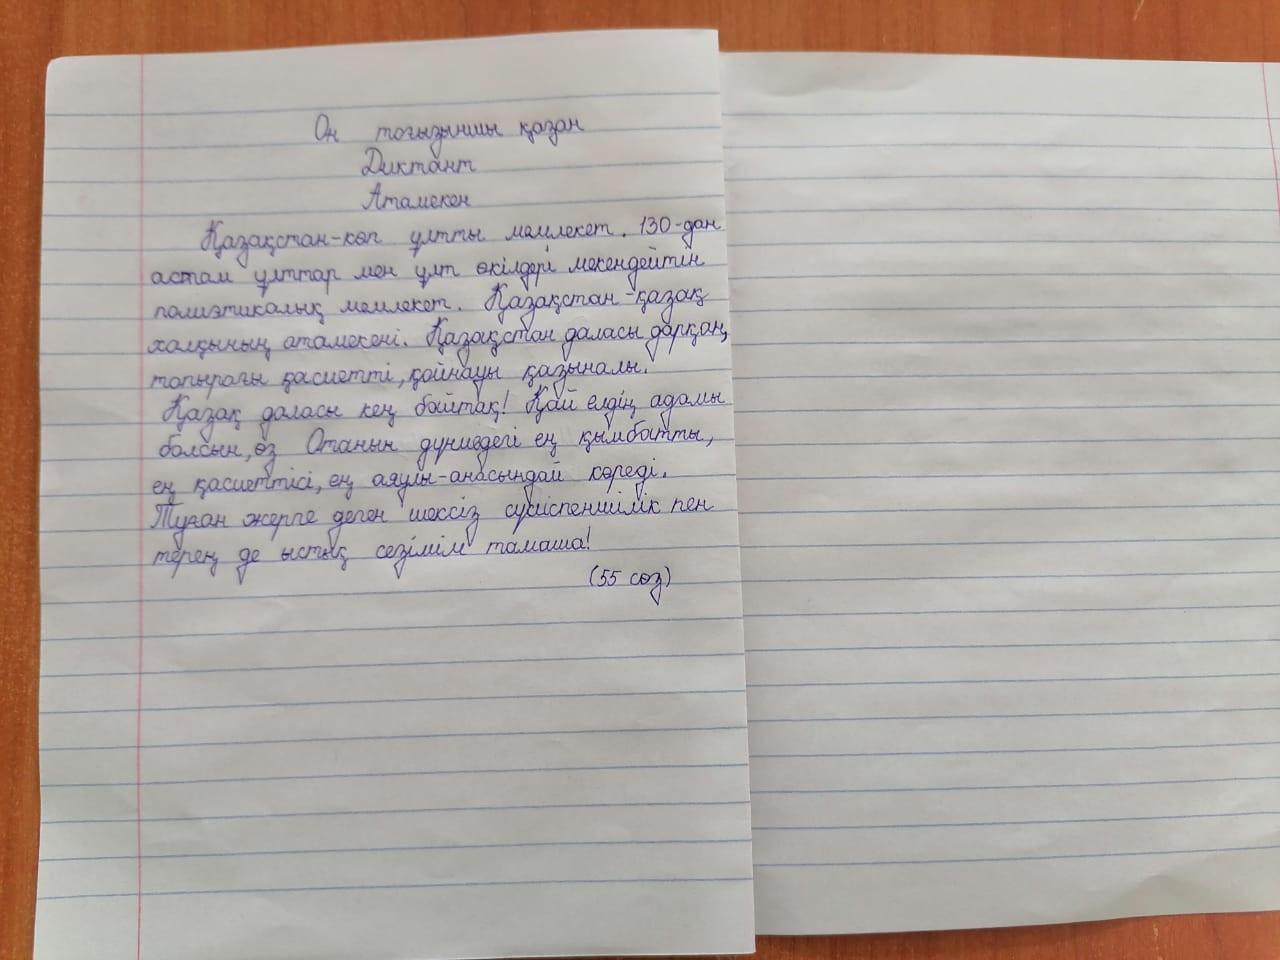 Он тоғызыншы қазан
Диктант
Атамекен
Қазақстан-көп ұлтты мемлекет. 130-дан
астам ұлттар мен ұлт өкілдері мекендейтін
полиэтикалық мемлекет. Қазақстан-қазақ
халқының атамекені. Қазақстан даласы дарқан,
топырағы қасиетті, қойнауы қазыналы.
Қазақ даласы кең байтақ! Қай елдің адамы
болсын, өз Отанын дүниедегі ең қымбатты,
ең қасиеттісі, ең аяулы-анасындай көреді.
Туған жерге деген шексіз сүйіспеншілік пен
терең де ыстық сезімім тамаша!
(55 сөз)